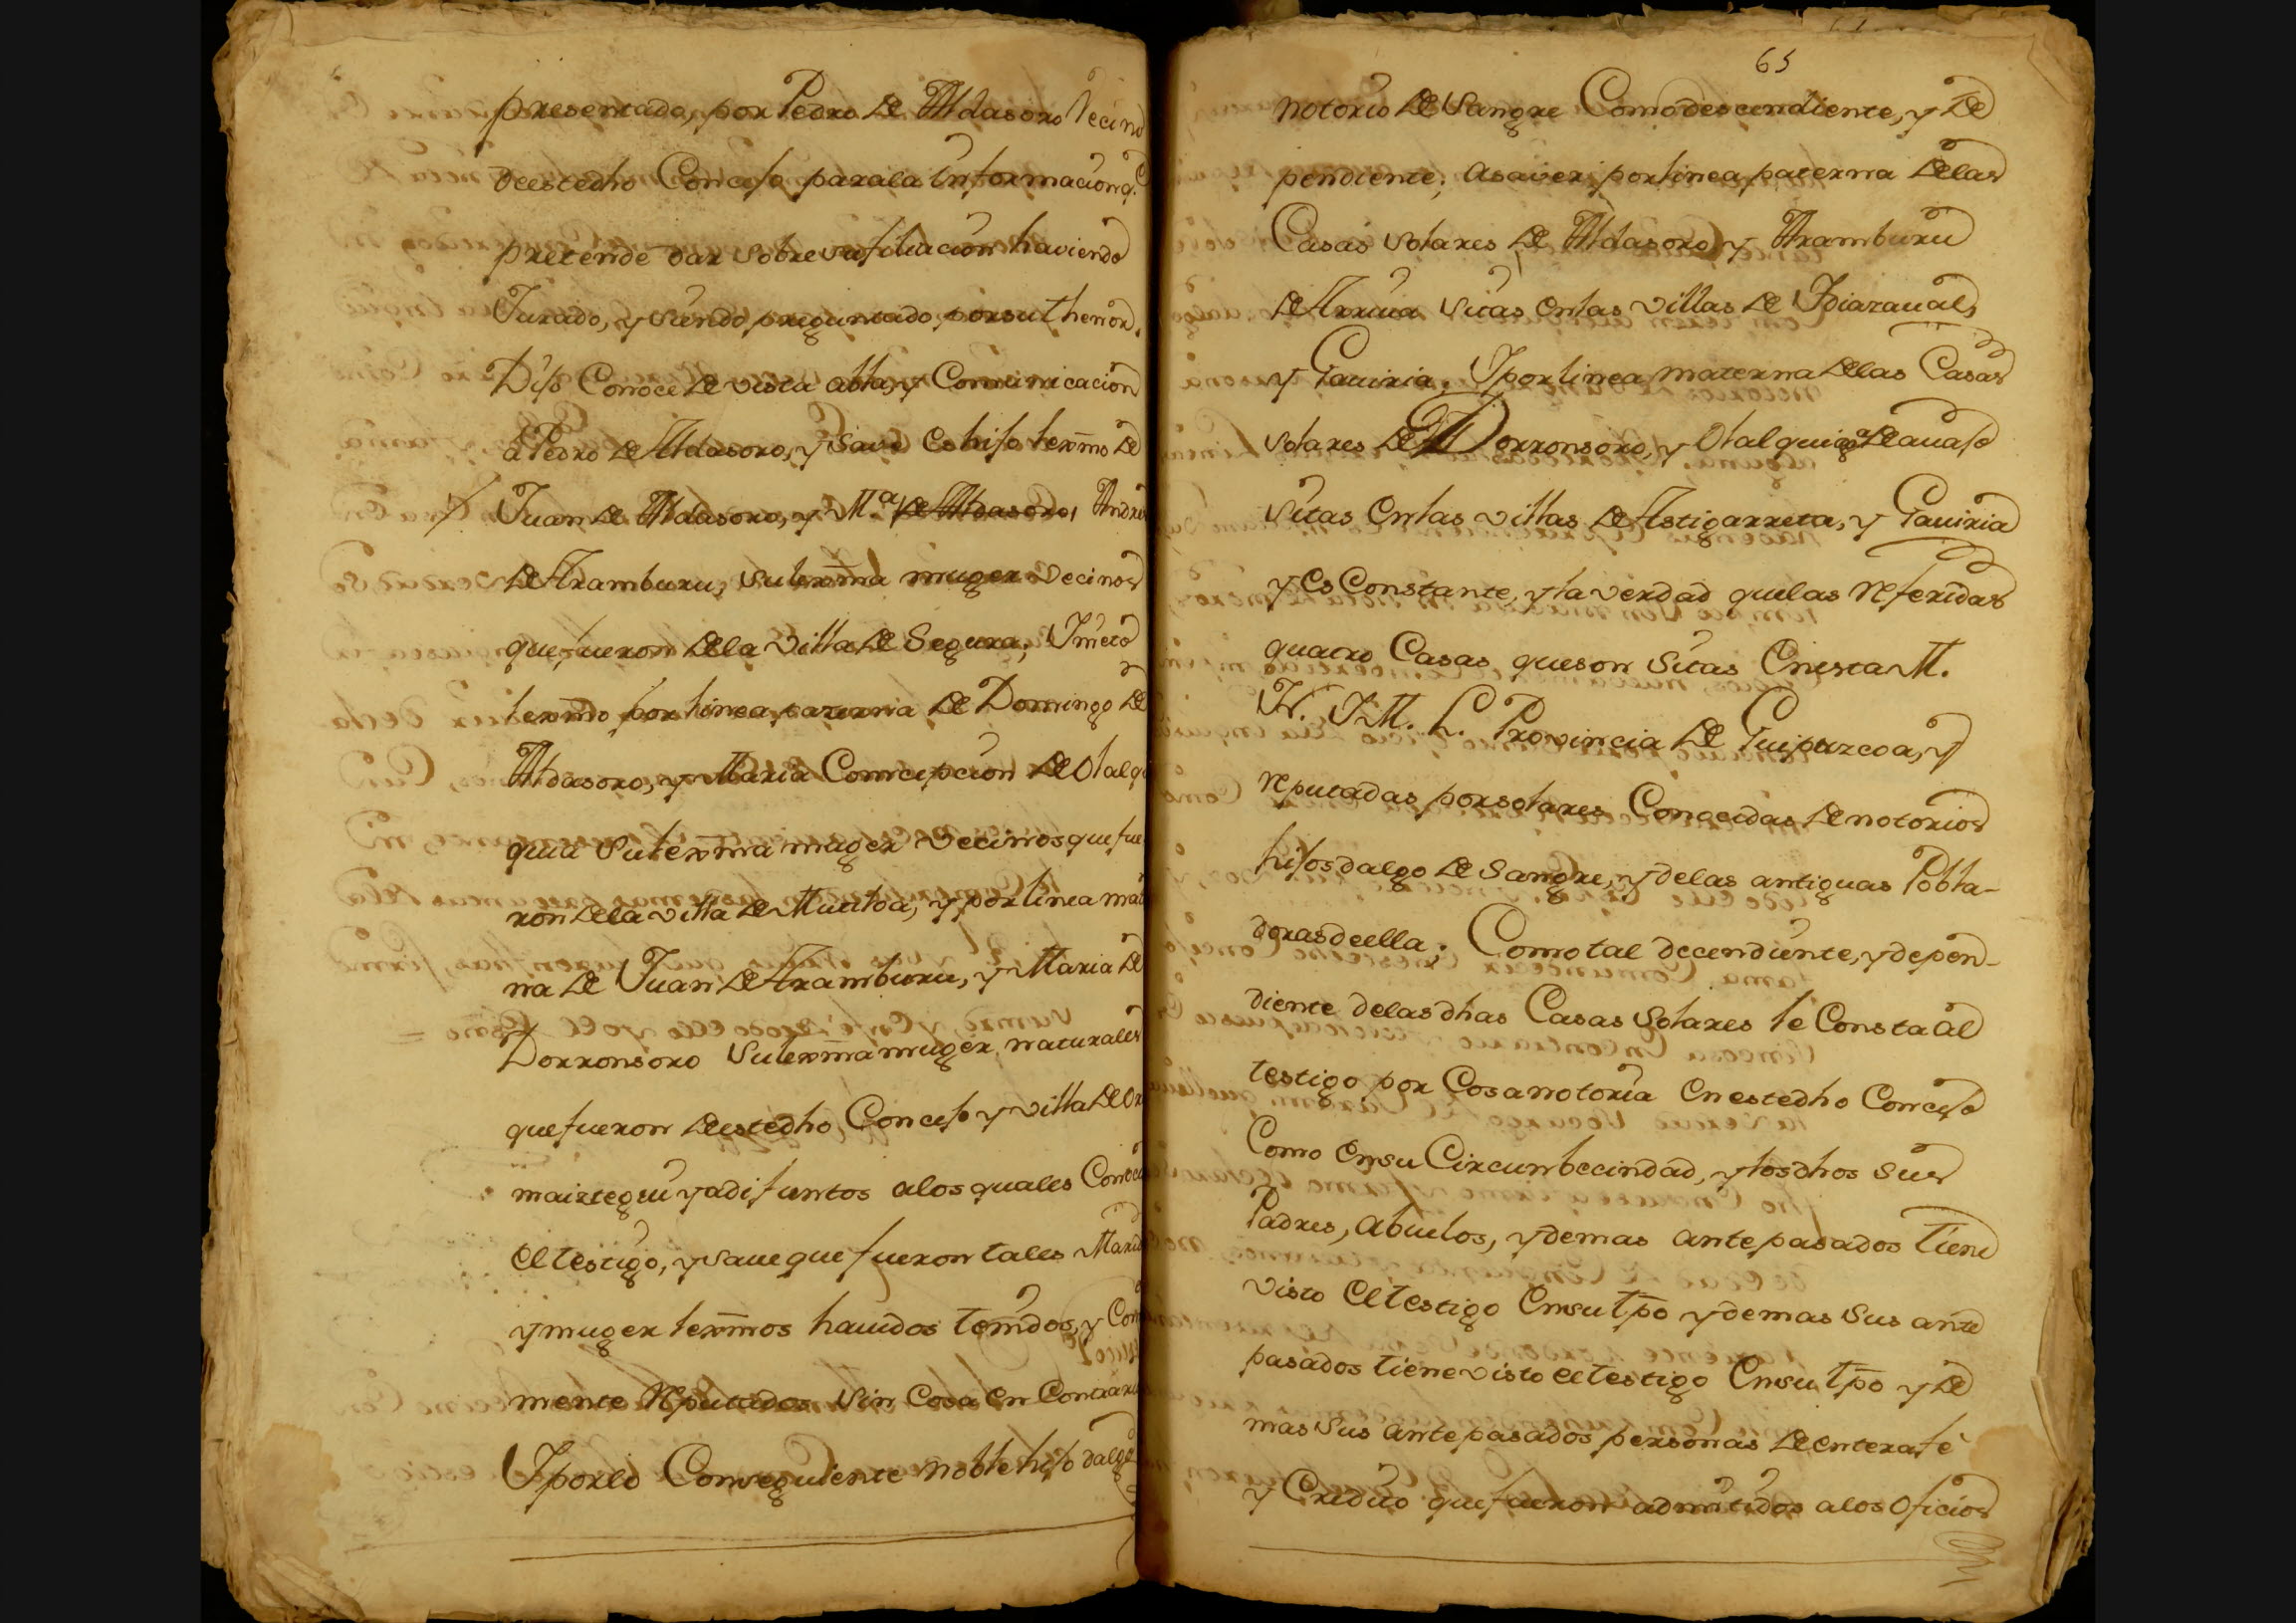 presentado, por Pedro de Aldasoro Vecino
deestedho Concejo parala informacion q.e
pretende dar sobre su filiacion haviendo
Jurado, y siendo preguntado, porsu thenor.
Dijo Conoce de vista abla, y Comunicacion
a Pedro de Aldasoro, y save es hijo lexmo de
Juan de Aldasoro, y M.a de Aldasoro, Andre
de Aramburu, su lexma muger vecinos
quefueron dela villa de Segura; Y nieto
lexmo por linea paterna de Domingo de
Aldasoro, y Maria Concepcion de Olalqui
quia su lexma muger vecinos que fue
ron dela villa de Mutiloa, y por linea mater
na de Juan de Aramburu, y Maria de
Dorronsoro su lexma muger, naturales
quefueron deestedho Concejo y villa de Or
maiztegui yadifuntos alos quales Conoció
el testigo, y save que fueron tales Marido
y muger lexmos havidos tenidos, y Comun
mente Reputados sin Cosa en Contrario
Y porlo Conseguiente noble hijo dalgo
65
notorio de sangre Como descendiente, y de
pendiente; asaver por linea paterna delas
Casas solares de Aldasoro, y Aramburu
de Arriva sitas enlas villas de Idiazaval,
y Gaviria; Y por linea materna delas Casas
solares de Dorronsoro, y Olalquiaga de avajo
sitas enlas villas de Astigarreta, y Gaviria
y es Constante, y la verdad quelas Referidas
quatro Casas, queson sitas enesta M.
N. Y M. L. Provincia de Guipuzcoa, y
Reputadas porsolares Conocidas de notorios
hijosdalgo de sangre, y delas antiguas Pobla-
dorasdeella; Como tal decendiente, y depen-
diente delasdhas Casas solares le Consta al
testigo por Cosa notoria en estedho Concejo
Como ensu Circunbecindad, y losdhos sus
Padres, abuelos, y demas antepasados tiene
visto el testigo ensu tpo y demas sus ante
pasados tiene visto el testigo ensu tpo y de
mas sus antepasados personas de entera fé
y Credito que fueron admitidos alos oficios